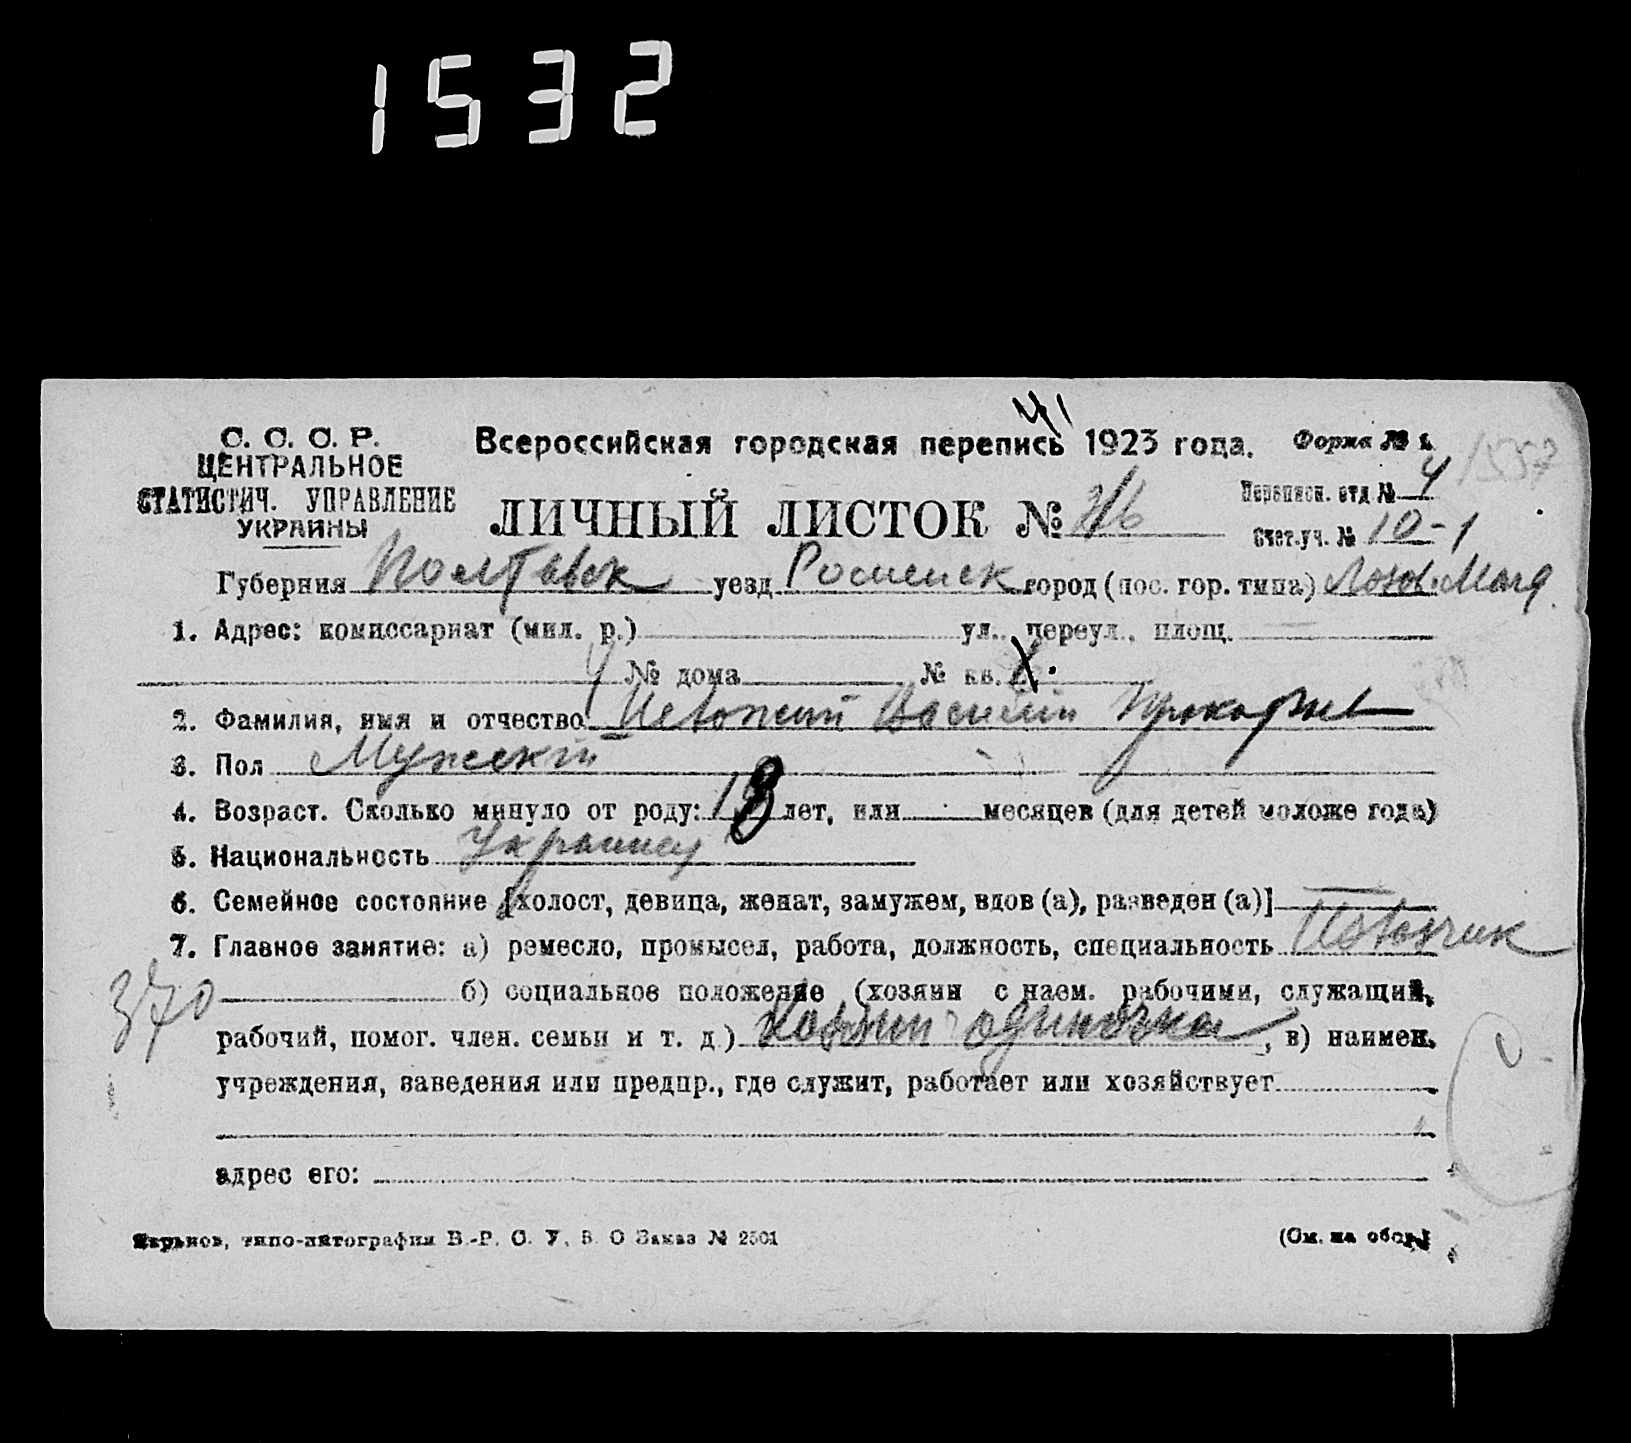 1532
С. С. С. Р.
ЦЕНТРАЛЬНОЕ
СТАТИСТИЧ. УПРАВЛЕНИЕ
УКРАИНЫ
Всероссийская городская перепись 1923 года.
Форма № 1.
ЛИЧНЫЙ ЛИСТОК №
Переписн. отд. № 4
Счет. уч. № 10-1
Губерния Полтавск уезд Роменск город (пос. гор. типа)
1. Адрес: комиссариат (мил. р.) ул., переул., площ.
№ дома № кв.
2. Фамилия, имя и отчество Василий Прокофьев
3. Пол Мужский
4. Возраст. Сколько минуло от роду: лет, или месяцев (для детей моложе года)
5. Национальность Украинец
6. Семейное состояние [холост, девица, женат, замужем, вдов (а), разведен (а)]
7. Главное занятие: а) ремесло, промысел, работа, должность, специальность
370
б) социальное положение (хозяин с наем. рабочими, служащий,
рабочий, помог. член. семьи и т. д.) Хозяин одиночка, в) наимен.
учреждения, заведения или предпр., где служит, работает или хозяйствует
адрес его:
Харьков, типо-литография В.-Р. С. У. В. О Заказ № 2501
(См. на обор.)